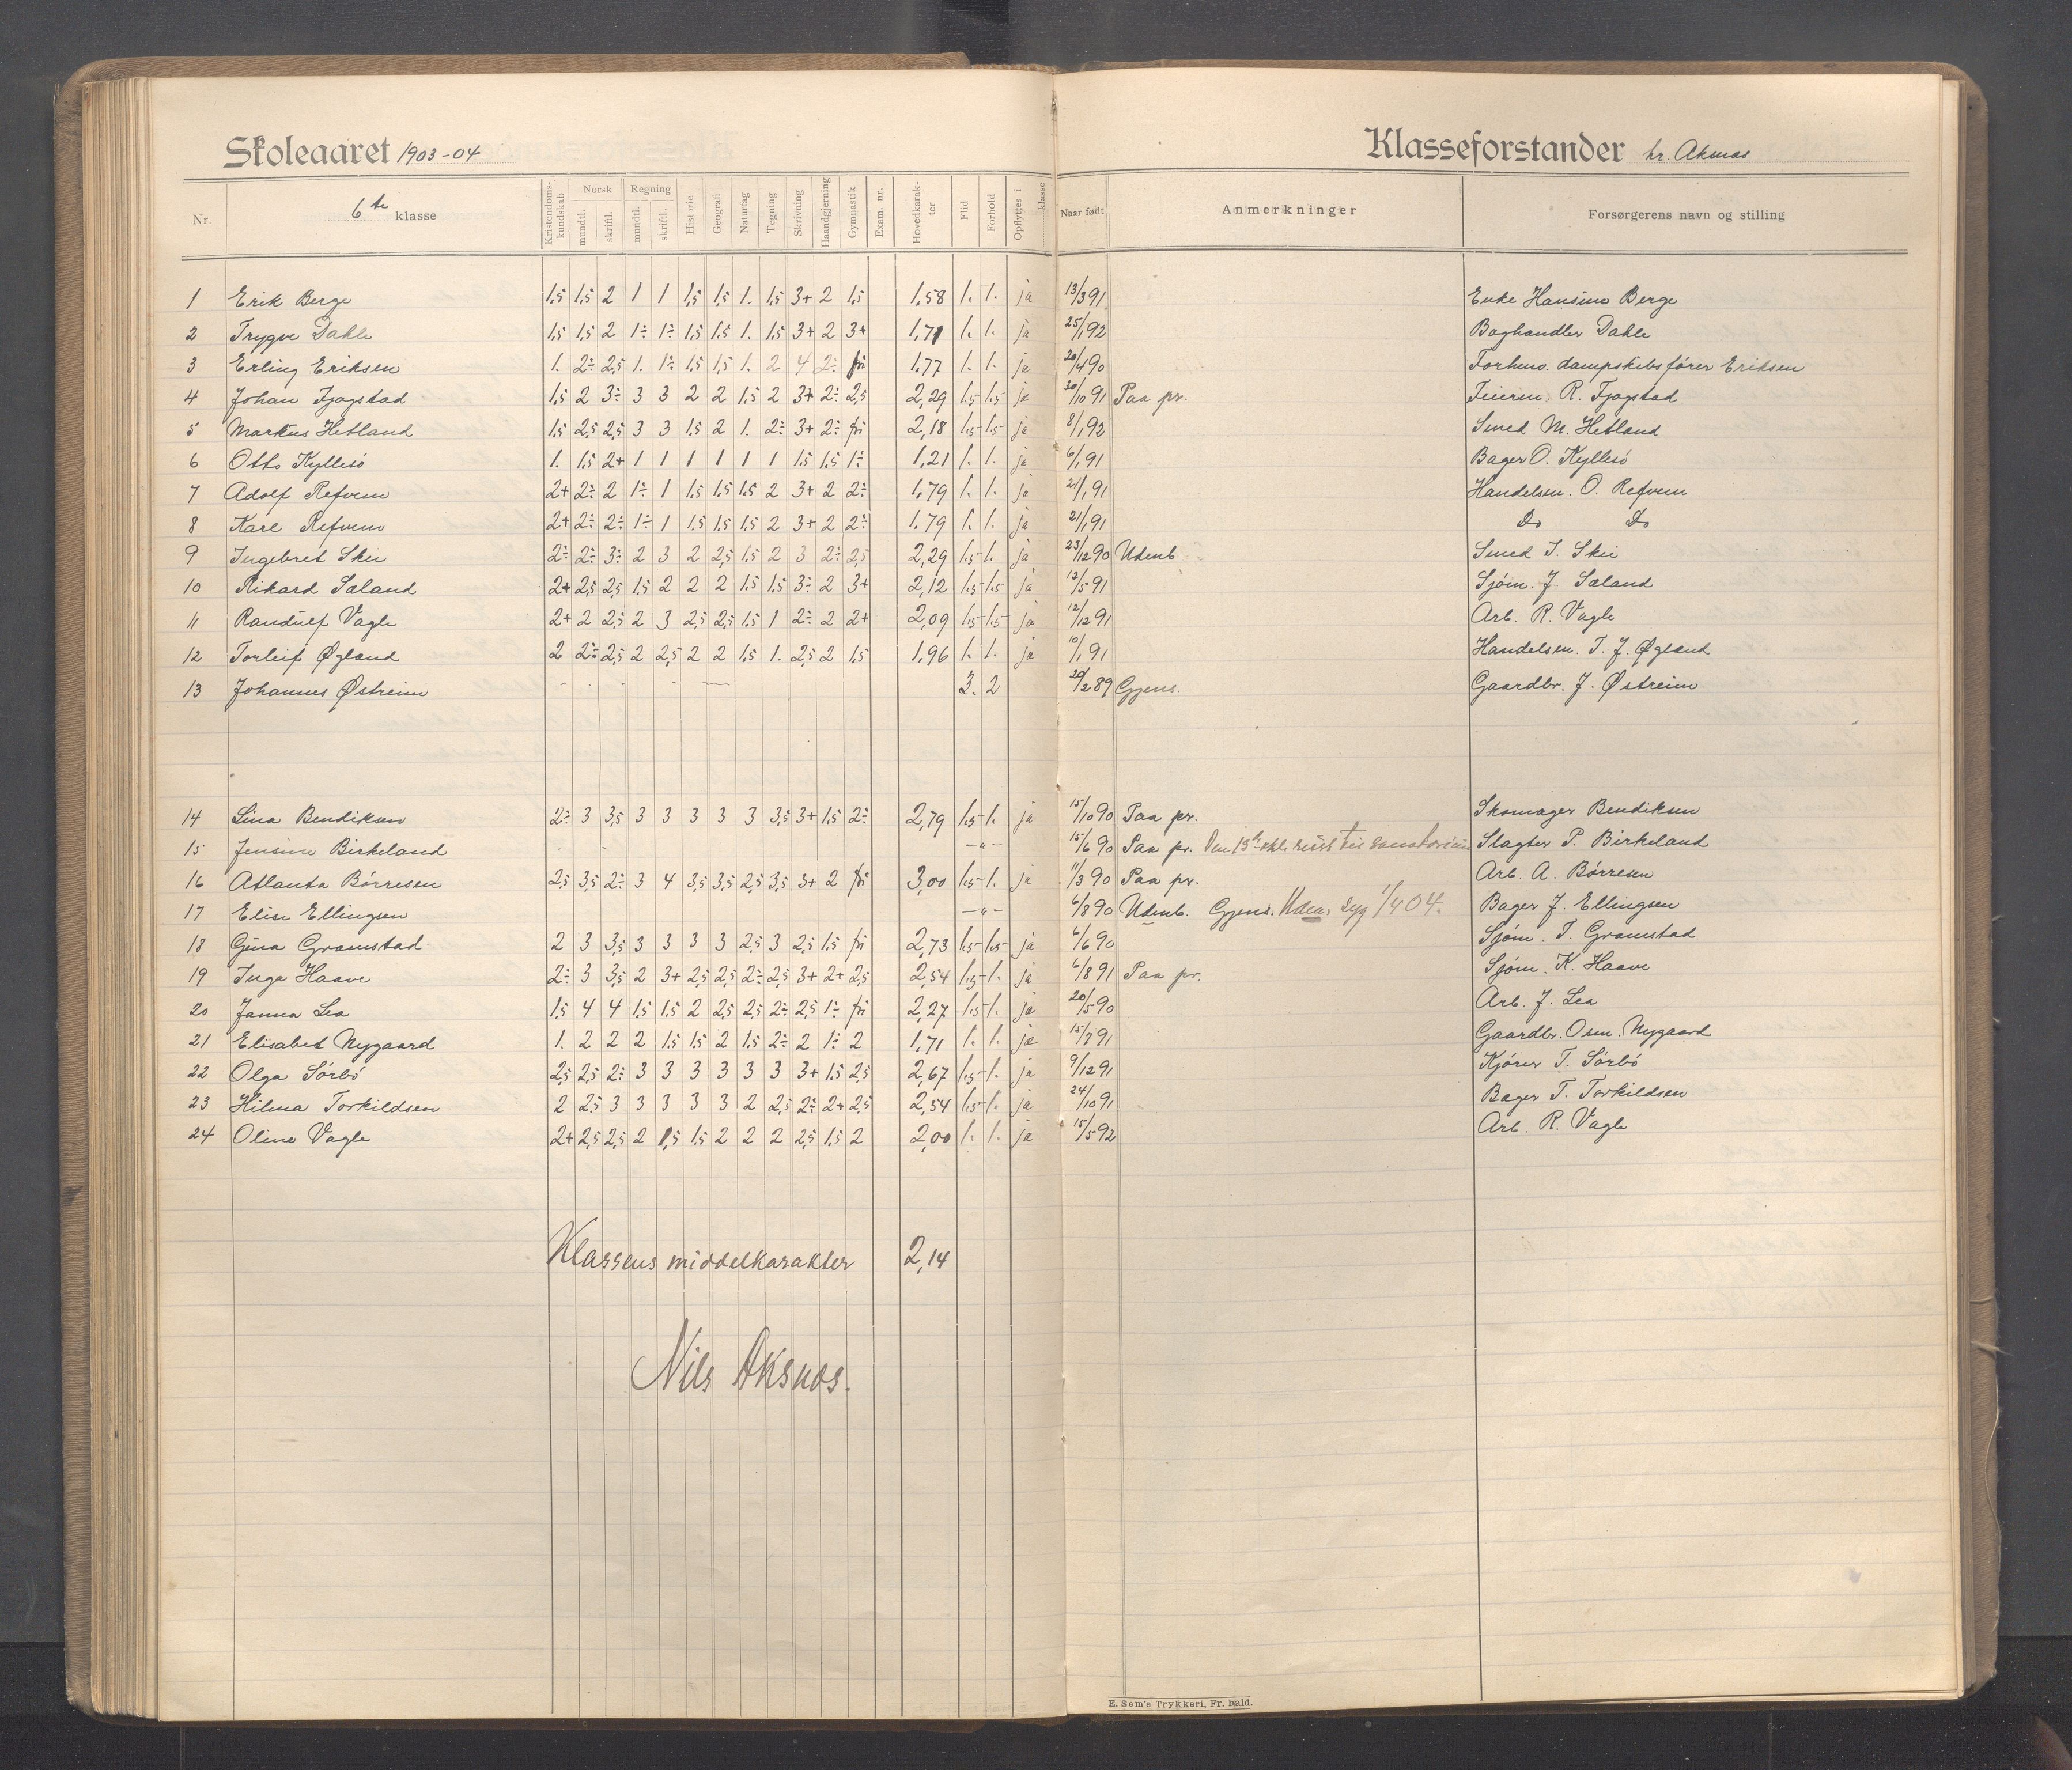 Skoleaaret 1903-04 Klasseforstander hr. Aksnos
Nr. 6te klasse Kristendomskundskab Norsk mundtl. skriftl. Regning mundtl. skriftl. Historie Geografi Naturfag Tegning Skrivning Haandgjerning Gymnastik Exam. nr. Hovedkarakter Flid Forhold Opflyttes i klasse Naar født Anmerkninger Forsørgerens navn og stilling
1 Erik Berge 1,5 1,5 2 1 1 1,5 1,5 1. 1,5 3+ 2 1,5 1,58 1. 1. ja 13/3 91 Enke Hansine Berge
2 Trygve Dahle 1,5 1,5 2 1÷ 1÷ 1,5 1,5 1. 1,5 3+ 2 3+ 1,71 1. 1. ja 25/1 92 Boghandler Dahle
3 Erling Eriksen 1. 2÷ 2,5 1. 1÷ 1,5 1,5 1. 2 4 2÷ fri 1,77 1. 1. ja 20/4 90 Forhenv. dampskibsfører Eriksen
4 Johan Fjogstad 1,5 2 3÷ 3 3 2 2 1,5 2 3+ 2÷ 2,5 2,29 1,5 1,5 ja 30/10 91 Paa pr. Feierm. R. Fjogstad
5 Markus Hetland 1,5 2,5 2,5 3 3 1,5 2 1. 2÷ 3+ 2÷ fri 2,18 1,5 1,5 ja 8/1 92 Smed M. Hetland
6 Otto Kyllesø 1. 1,5 2+ 1 1 1 1 1 1 1,5 1,5 1÷ 1,21 1. 1. ja 6/1 91 Bager O. Kyllesø
7 Adolf Refvem 2+ 2÷ 2 1÷ 1 1,5 1,5 1,5 2 3+ 2 2÷ 1,79 1. 1. ja 21/1 91 Handelsm. O. Refvem
8 Kare Refvem 2+ 2÷ 2÷ 1÷ 1 1,5 1,5 1,5 2 3+ 2 2÷ 1.79 1. 1. ja 21/1 91 Do Do
9 Ingebret Skei 2÷ 2÷ 3÷ 2 3 2 2,5 1,5 2 3 2÷ 2,5 2,29 1,5 1. ja 23/12 90 Udenb Smed I. Skei
10 Rikard Saland 2+ 2,5 2,5 1,5 2 2 2 1,5 1,5 3÷ 2 3+ 2,12 1,5 1,5 ja 12/5 91 Sjøm. J. Saland
11 Randulf Vagle 2+ 2 2,5 2 3 2,5 2,5 1,5 1 2÷ 2 2+ 2,09 1,5 1,5 ja 12/12 91 Arb. R. Vagle
12 Torleif Øgland 2 2÷ 2,5 2 2,5 2 2 1,5 1. 2,5 2 1,5 1,96 1. 1. ja 10/1 91 Handelsm. T. J. Øgland
13 Johannes Østreim 3. 2 20/2 89 Gjens. Gaardbr. J. Østreim
14 Lina Bendiksen 2÷ 3 3,5 3 3 3 3 3 3,5 3+ 1,5 2÷ 2,79 1,5 1. ja 15/10 90 Paa pr. Skomager Bendiksen
15 Jensine Birkeland - " - 15/6 90 Paa pr. Den 13de reist til sanatorium Slagter P. Birkeland
16 Atlanta Børresen 2,5 3,5 2÷ 3 4 3,5 3,5 2,5 3,5 3+ 2 fri 3,00 1,5 1. ja 11/3 90 Paa pr. Arb. A. Børresen
17 Elise Ellingsen - " - 6/8 90 Udenb. Gjens. syg 1/4 04. Bager J. Ellingsen
18 Gina Gramstad 2 3 3,5 3 3 3 3 2,5 3 2,5 1,5 fri 2,73 1,5 1,5 ja 6/6 90 Sjøm. T. Gramstad
19 Inga Haave 2÷ 3 3,5 2 3+ 2,5 2,5 2÷ 2,5 3+ 2+ 2,5 2,54 1,5 1. ja 6/8 91 Paa pr. Sjøm. K. Haave
20 Janna Lea 1,5 4 4 1,5 1,5 2 2,5 2,5 2÷ 2,5 1÷ fri 2,27 1,5 1. ja 20/5 90 Arb. J. Lea
21 Elisabet Nygaard 1. 2 2 2 1,5 1,5 2 1,5 2÷ 2 1÷ 2 1,71 1. 1. ja 15/7 91 Gaardbr. Osm. Nygaard
22 Olga Sørbø 2,5 2,5 2÷ 3 3 3 3 3 3 3+ 1,5 2,5 2,67 1,5 1. ja 9/12 91 Kjører T. Sørbø
23 Hilma Torkildsen 2 2,5 3 3 3 3 3 2 2,5 2÷ 2+ 2,5 2,54 1,5 1. ja 24/10 91 Bager T. Torkildsen
24 Oline Vagle 2+ 2,5 2,5 2 1,5 1,5 2 2 2 2,5 1,5 2 2,00 1. 1. ja 15/5 92 Arb. R. Vagle
Klassens middelkarakter 2,14
Nils Aksnos.
E. Sem's Trykkeri, Fr. hald.